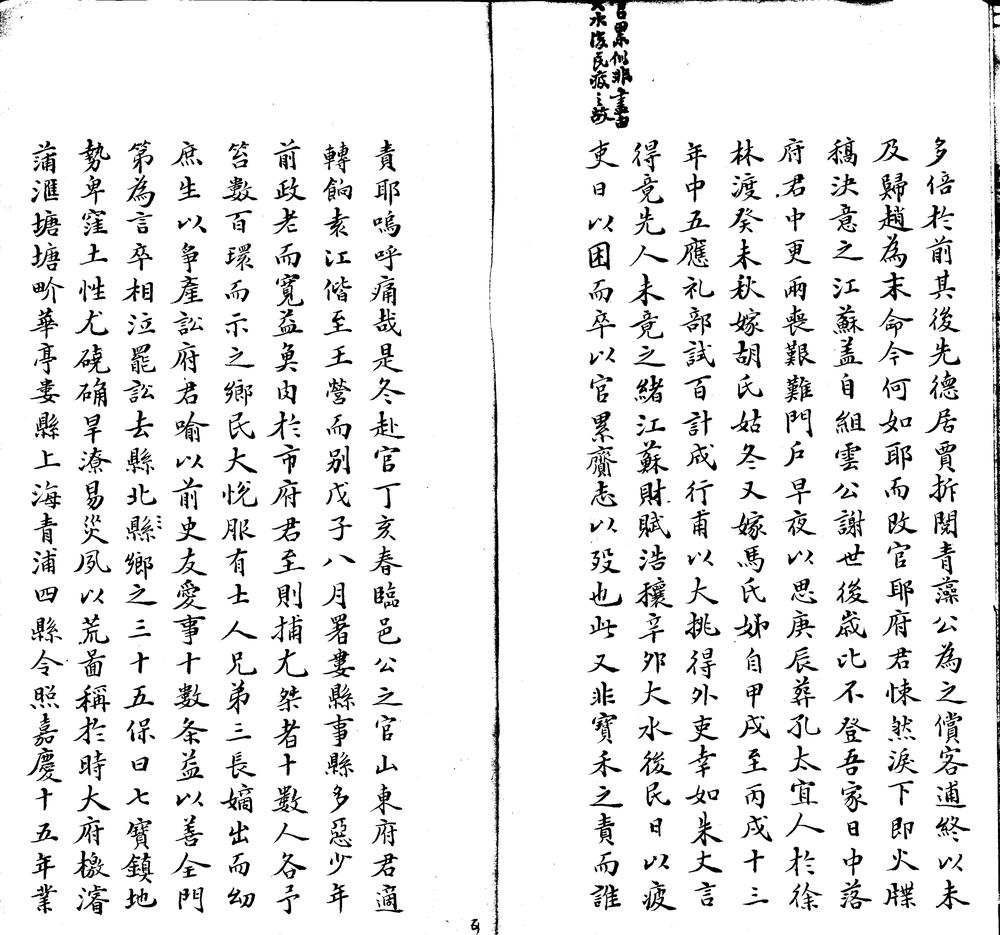 官累似非盡由
大水後民疲之故
多倍於前其後先德居賈折閱青藻公為之償客逋終以未
及歸趙為末命今何如耶而改官耶府君悚然淚下即火牒
稿決意之江蘇蓋自組雲公謝世後歲比不登吾家日中落
府君中更兩喪艱難門戶早夜以思庚辰葬孔太宜人於徐
林渡癸未秋嫁胡氏姑冬又嫁馬氏姊自甲戌至丙戌十三
年中五應礼部試百計成行甫以大挑得外吏幸如朱丈言
得竟先人未竟之緒江蘇財賦浩穰辛卯大水後民日以疲
吏日以困而卒以官累齎志以歿也此又非寶禾之責而誰
責耶嗚呼痛哉是冬赴官丁亥春臨邑公之官山東府君適
轉餉袁江偕至王營而別戊子八月署婁縣事縣多惡少年
前政老而寬益奐肉於市府君至則捕尤桀者十數人各予
笞數百環而示之鄉民大悅服有士人兄弟三長嫡出而幼
庶生以爭產訟府君喻以前史友愛事十數条益以善全門
第為言卒相泣罷訟去縣北縣鄉之三十五保曰七寶鎮地
勢卑窪土性尤磽确旱潦易災夙以荒啚稱於時大府檄濬
蒲滙塘塘畍華亭婁縣上海青浦四縣令照嘉慶十五年業